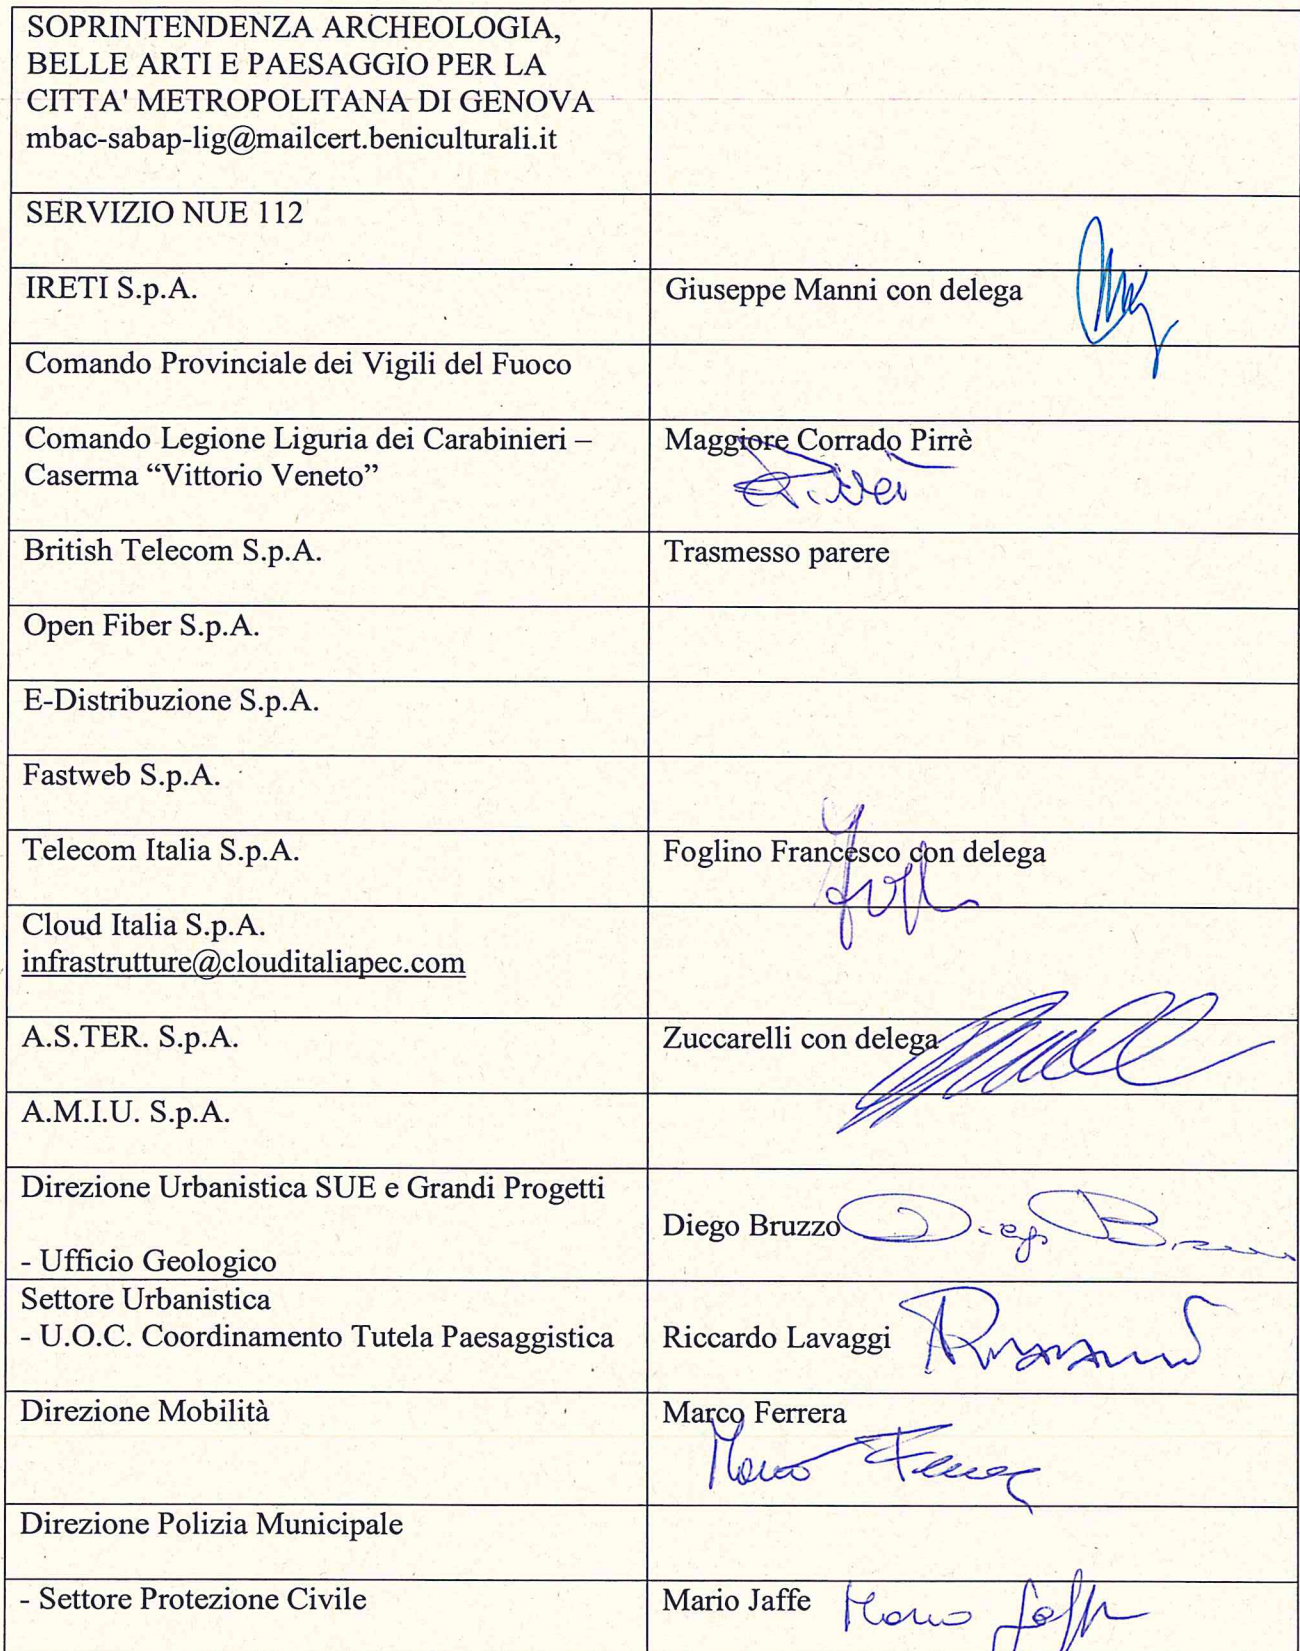 SOPRINTENDENZA ARCHEOLOGIA,
BELLE ARTI E PAESAGGIO PER LA
CITTA' METROPOLITANA DI GENOVA
mbac-sabap-lig@mailcert.beniculturali.it
SERVIZIO NUE 112
IRETI S.p.A.
Giuseppe Manni con delega
Comando Provinciale dei Vigili del Fuoco
Comando Legione Liguria dei Carabinieri –
Caserma “Vittorio Veneto”
Maggiore Corrado Pirrè
British Telecom S.p.A.
Trasmesso parere
Open Fiber S.p.A.
E-Distribuzione S.p.A.
Fastweb S.p.A.
Telecom Italia S.p.A.
Foglino Francesco con delega
Cloud Italia S.p.A.
infrastrutture@clouditaliapec.com
A.S.TER. S.p.A.
Zuccarelli con delega
A.M.I.U. S.p.A.
Direzione Urbanistica SUE e Grandi Progetti
- Ufficio Geologico
Diego Bruzzo
Settore Urbanistica
- U.O.C. Coordinamento Tutela Paesaggistica
Riccardo Lavaggi
Direzione Mobilità
Marco Ferrera
Marco Ferrera
Direzione Polizia Municipale
- Settore Protezione Civile
Mario Jaffe
Mario Jaffe